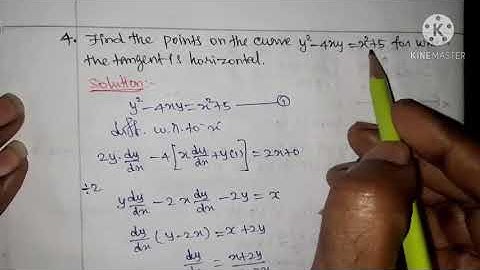 4. Find the points on the curve y²-4xy=x²+5 for
the tangent is horizontal.
Solution:-
y²-4xy=x²+5 ——①
diff. w.r. to x
2y.dy/dx -4[x dy/dx+y(1)]=2x+0
÷2
y dy/dx -2x dy/dx -2y=x
dy/dx (y-2x)=x+2y
dy/dx = x+2y
KINEMASTER